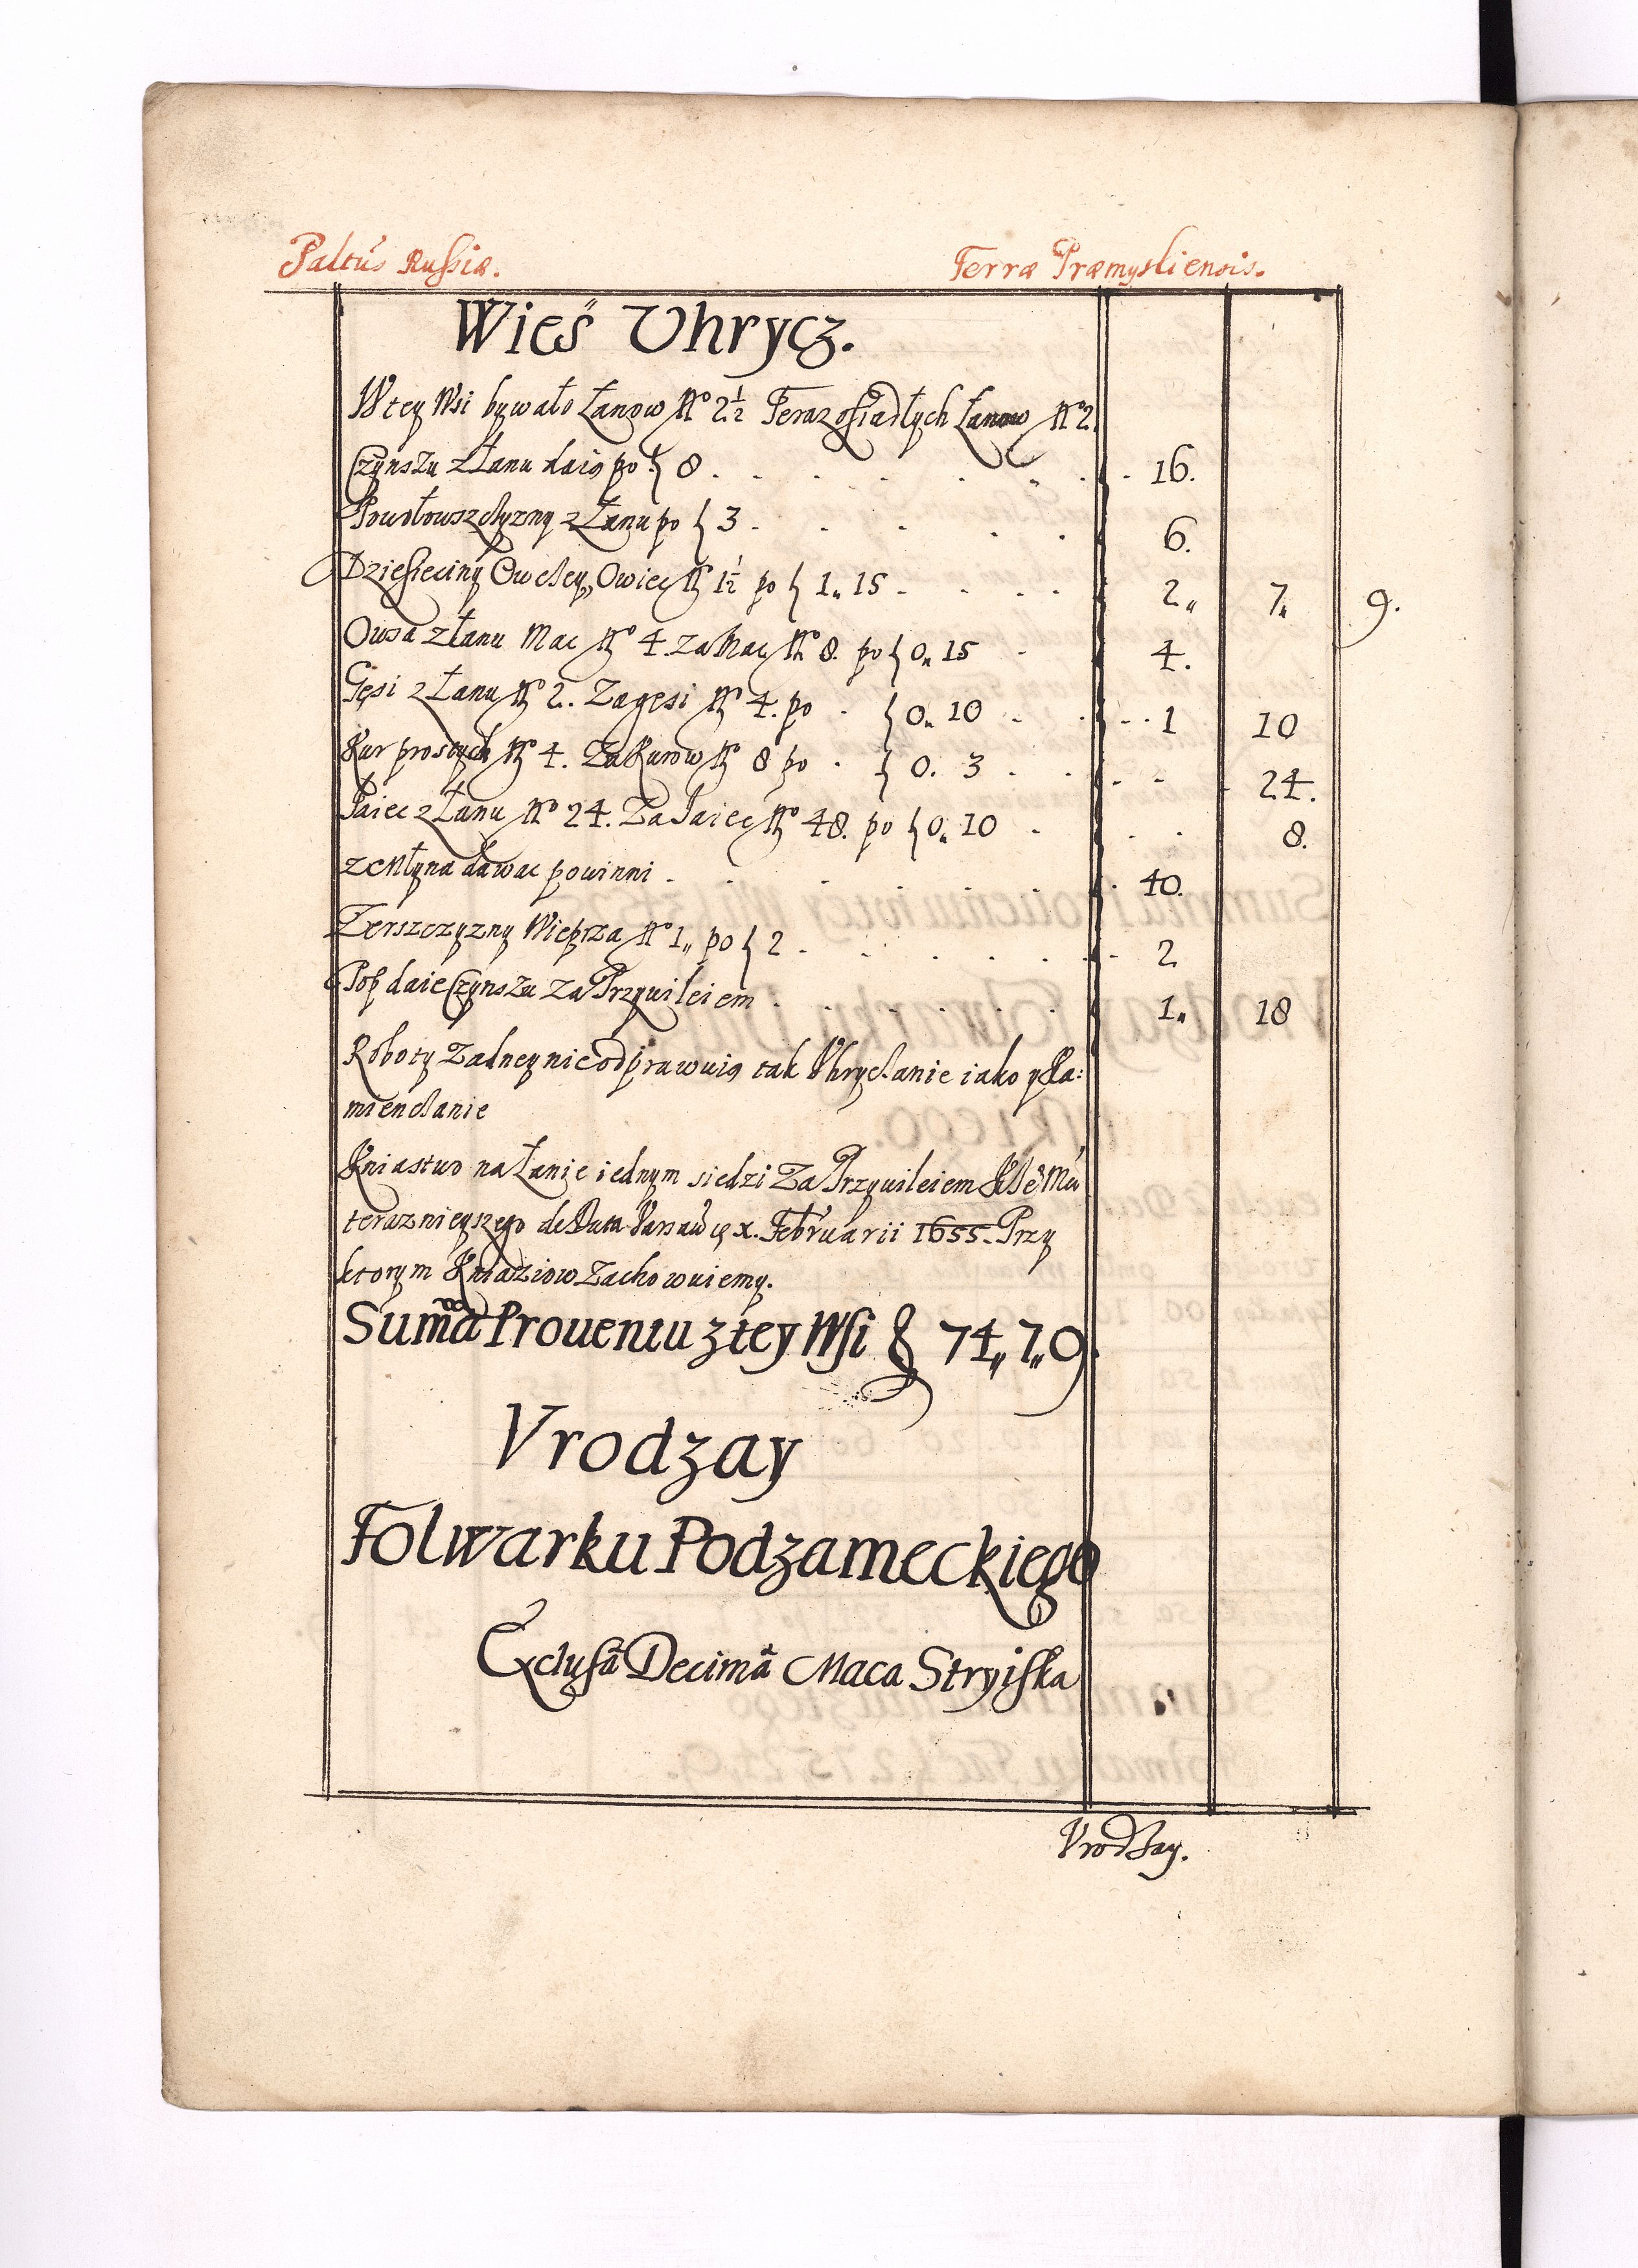 Paltús Russiæ. Terræ Præmysliensis.
Wieś Vhrycz.
W tey Wsi bywało Łanow Nº 2½ Teraz osiadłych Łanow Nº 2.
Czynszu z Łanu daią po f 8 . . . . . . . 16.
Powołowszczyzny z Łanu po f 3 . . . . . 6.
Dziesieciny Owczey, Owiec Nº 1½ po f 1„ 15 . . . . 2„ 7„ 9.
Owsa z Łanu Mac Nº 4. za Mac Nº 8. po f 0„ 15 . 4.
Gęsi z Łanu Nº 2. Za gęsi Nº 4. po . f 0„ 10 . . . . 1 10
Kur prostych Nº 4. Za Kurow Nº 8 po . f 0. 3 . . . . 24.
Jaiec z Łanu Nº 24. Za Jaiec Nº 48. po f 0„ 10 . . . 8.
ze Młyna dawac powinni . . . . . . . . 40.
Żerszczyzny Wieprza Nº 1„ po f 2 . . . . . . 2
Pop daie Czynszu za Przywileiem . . . . . . 1„ 18
Roboty Zadney nie odprawuią tak Vhryczanie iako y Ka:
mienczanie
Kniastwo na Łanie iednym siedzi Za Przywileiem
teraznieyszego de Data Varsaw æ x. Februarii 1655. Przy
ktorym Kniaziow Zachowuiemy.
Sum̃a Prouentu z tey Wsi f 74„ 7„ 9.
Vrodzay
Folwarku Podzameckiego
Exclusâ Decimâ Maca Stryiska
Vrodzay.